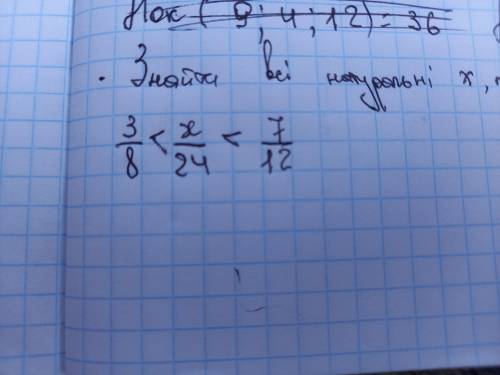 Нок ( 9; 4; 12) = 36
· Знайти всі натуральні x,
3/8 < x/24 < 7/12